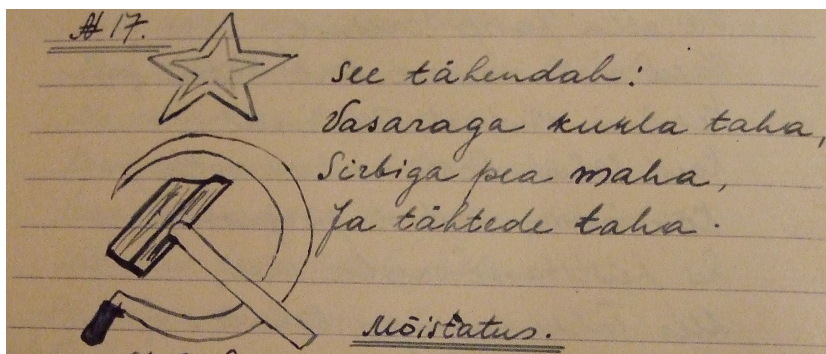 № 17.
See tähendab:
Vasaraga kukla taha,
Sirbiga pea maha,
Ja tähtede taha.
Mõistatus.